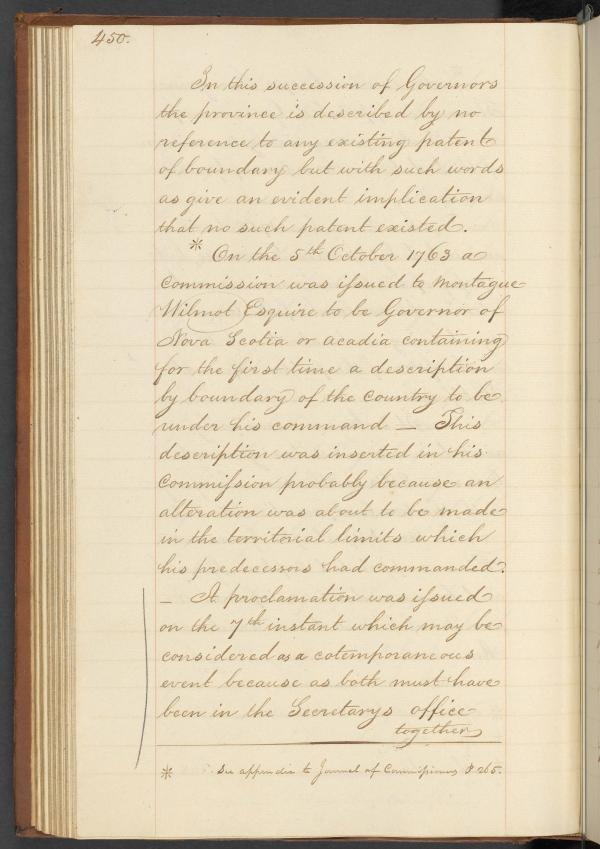 450.
In this succession of Governors
the province is described by no
reference to any existing patent
of boundary but with such words
as give an evident implication
that no such patent existed.
* On the 5th October 1763 a
Commission was issued to Montague
Wilmot Esquire to be Governor of
Nova Scotia or acadia containing
for the first time a description
by boundary of the country to be
under his command — This
description was inserted in his
Commission probably because an
alteration was about to be made
in the territorial limits which
his predecessors had commanded.
— A proclamation was issued
on the 7th instant which may be
considered as a cotemporaneous
event because as both must have
been in the Secretarys office
together
* See appendix to Journal of Commissioners P 265.